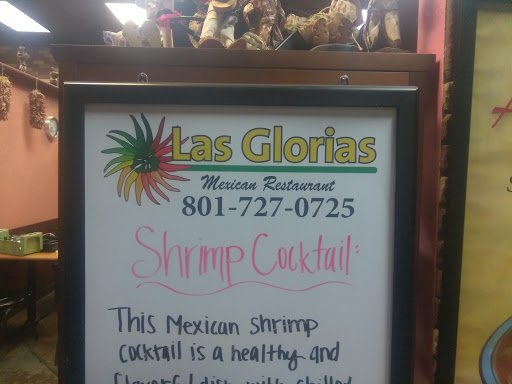 Las Glorias
Mexican Restaurant
801-727-0725
Shrimp Cocktail:
This Mexican shrimp
cocktail is a healthy and
flavorful dish with chilled